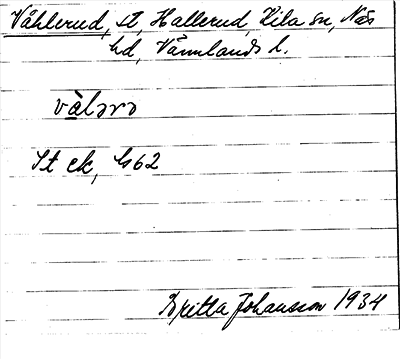 Våhlerud, st, Hallerud, Kila sn, Näs
hd, Värmlands l.
vàlərə
St ek, G62
Britta Johansson 1934